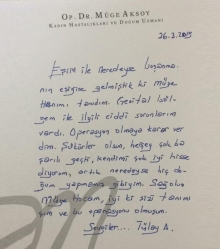 OP. DR. MÜGE AKSOY
KADIN HASTALIKLARI VE DOĞUM UZMANI
26.3.2015
Eşim ile neredeyse boşanma-
nın eşiğine gelmiştik ki müge
Hanımı tanıdım. Genital böl-
gem ile ilgili ciddi sorunlarım
vardı. Operasyon olmaya karar ver
dim. Şükürler olsun, herşey çok ba
şarılı geçti, kendimi çok iyi hisse
diyorum, artık neredeyse hiç do
ğum yapmamış gibiyim. Sağolun
Müge hocam, iyi ki sizi tanımı
şım ve bu operasyonu olmuşum.
Sevgiler... Tülay A.